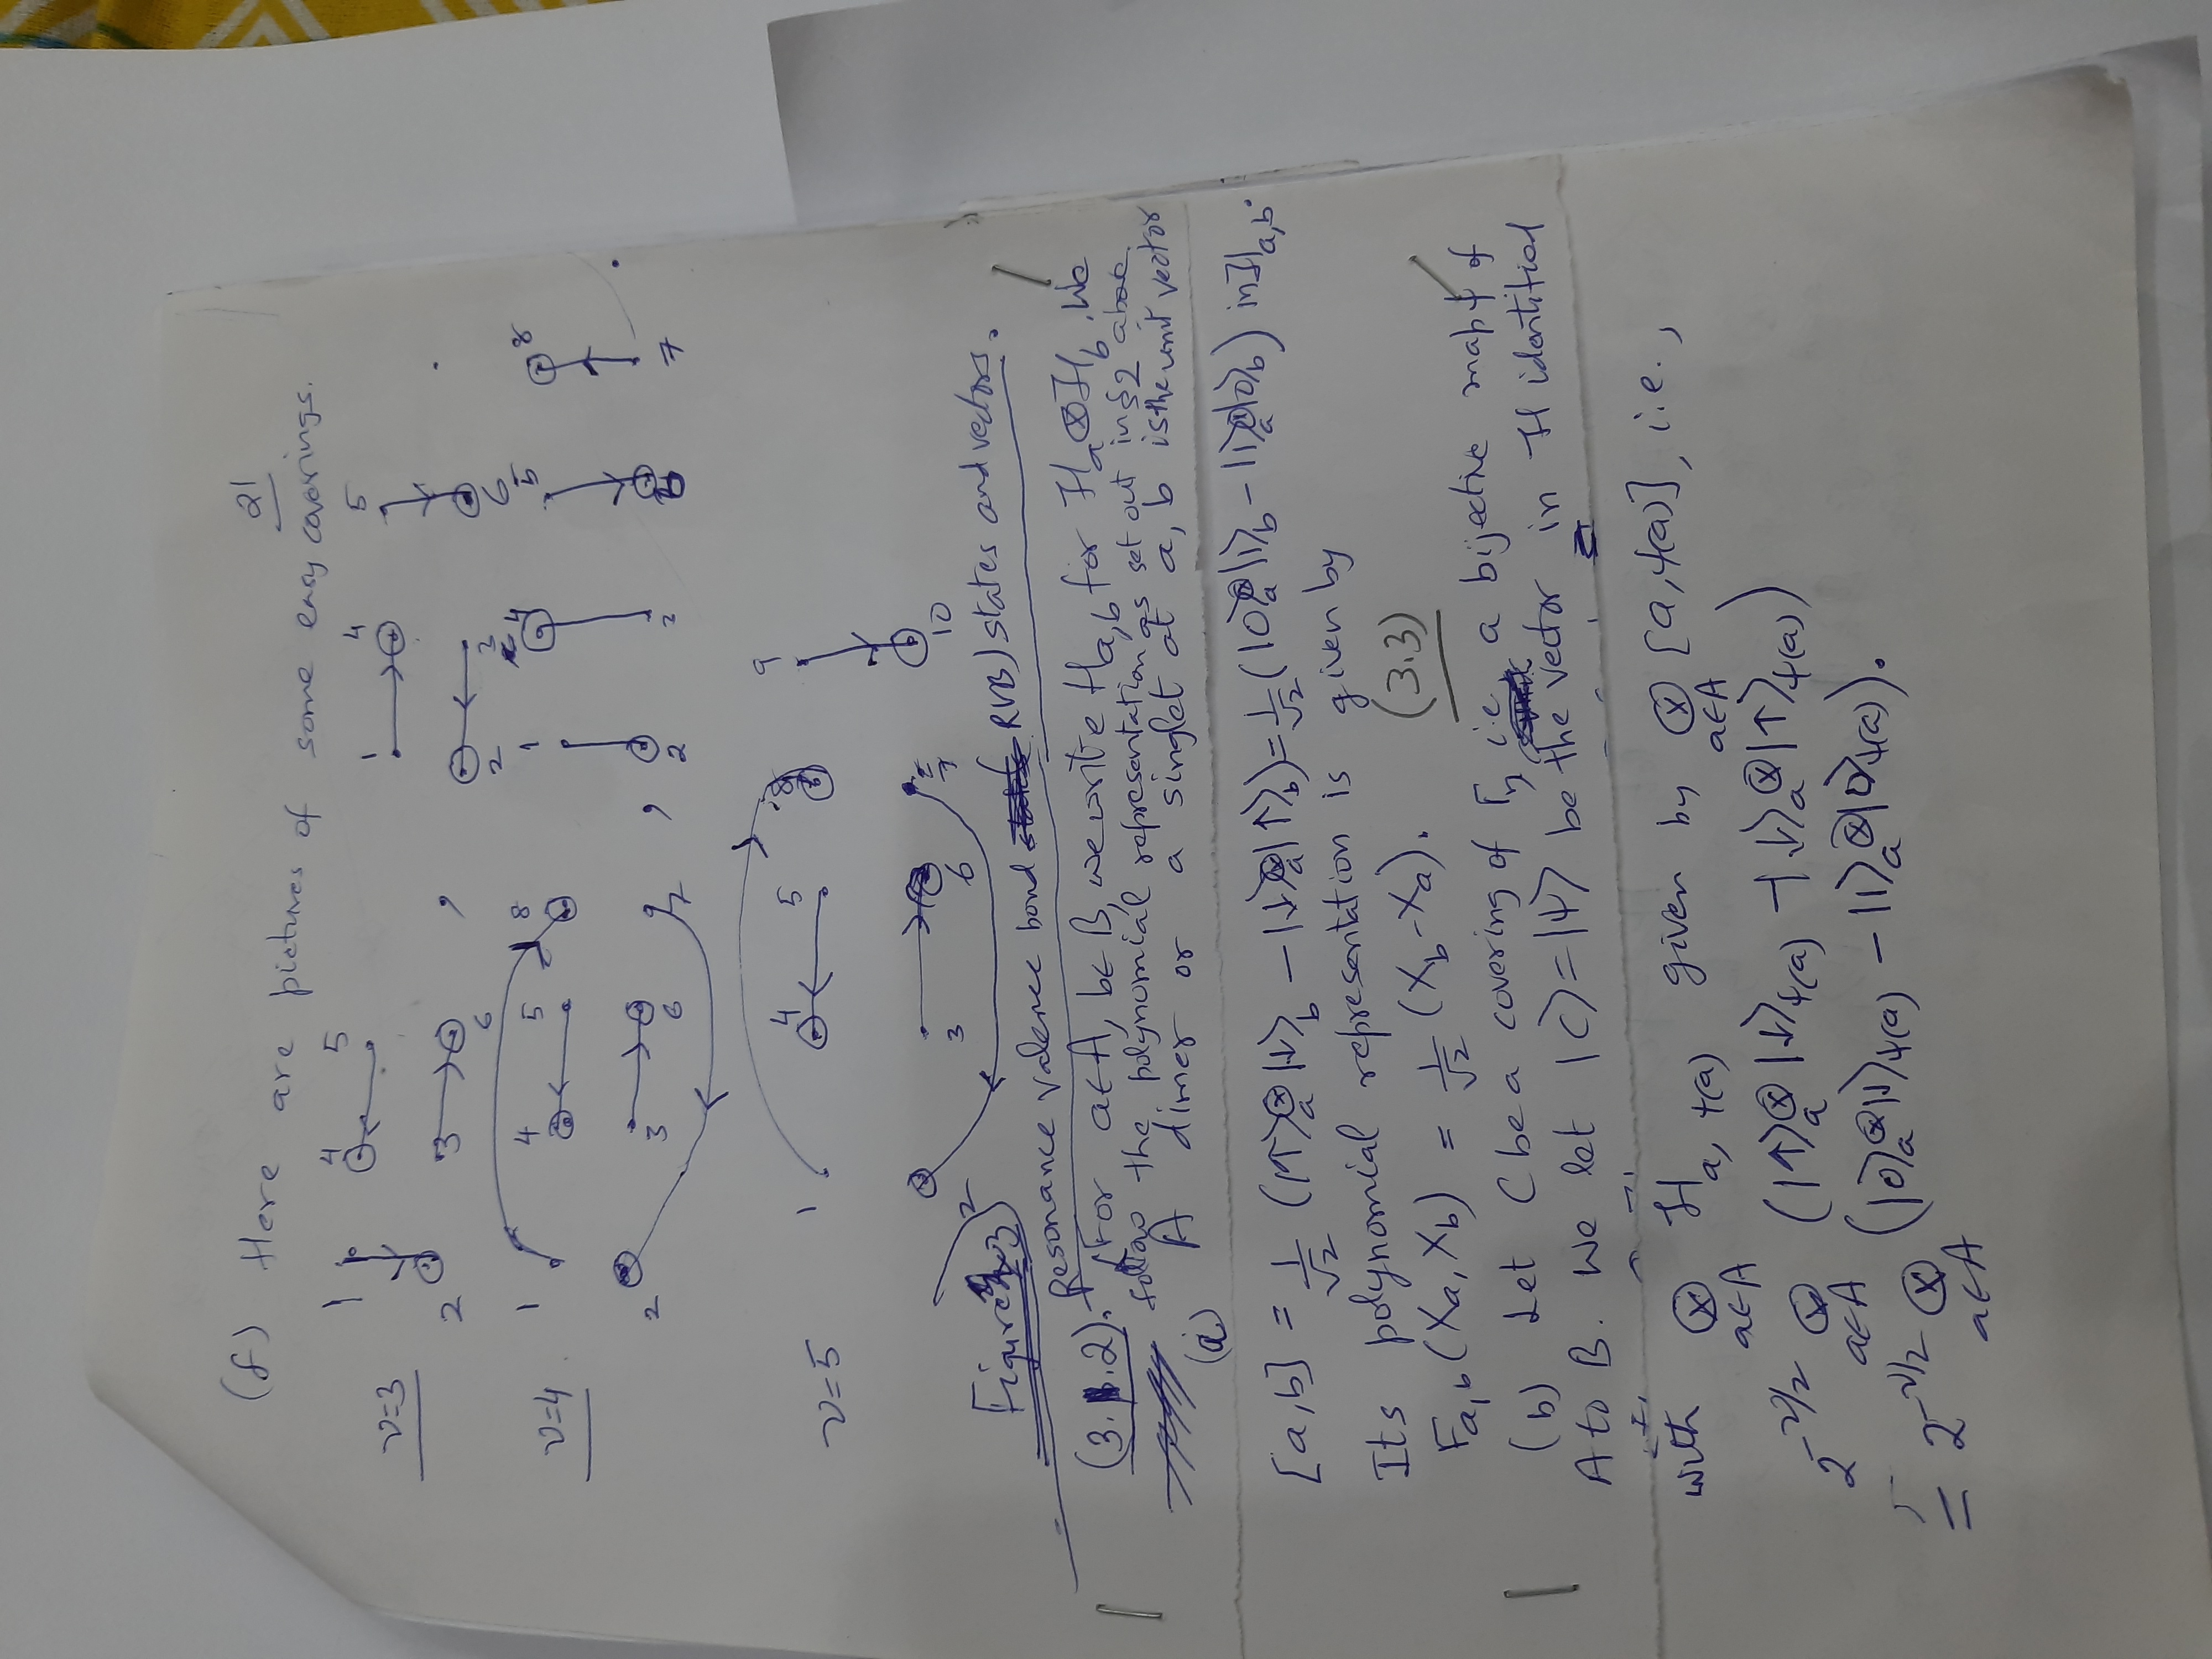 21
(f) Here are pictures of some easy coverings.
ν=3
1 4 5 1 4 5
2 3 6 , 2 3 6 .
ν=4
1 4 5 8 1 4 5 8
2 3 6 7 , 2 3 6 7 .
ν=5
1 4 5 8 9
2 3 6 7 10
Figure 3
Resonance valence bond (RVB) states and vectors.
(3.1.2). For a∈A, b∈B, we write H_{a,b} for H_a⊗H_b. We
follow the polynomial representation as set out in §2 above.
(a) A dimer or a singlet at a, b is the unit vector
[a,b] = 1/√2 (|↑⟩_a⊗|↓⟩_b − |↓⟩_a⊗|↑⟩_b) = 1/√2 (|0⟩_a⊗|1⟩_b − |1⟩_a⊗|0⟩_b) in H_{a,b}.
Its polynomial representation is given by
F_{a,b}(X_a, X_b) = 1/√2 (X_b − X_a). (3.3)
(b) Let C be a covering of Γ, i.e, a bijective map ψ of
A to B. We let |C⟩=|ψ⟩ be the vector in H identified
with ⊗_{a∈A} H_{a,ψ(a)} given by ⊗_{a∈A} [a,ψ(a)], i.e.,
2^{-ν/2} ⊗_{a∈A} (|↑⟩_a⊗|↓⟩_{ψ(a)} − |↓⟩_a⊗|↑⟩_{ψ(a)})
= 2^{-ν/2} ⊗_{a∈A} (|0⟩_a⊗|1⟩_{ψ(a)} − |1⟩_a⊗|0⟩_{ψ(a)}).